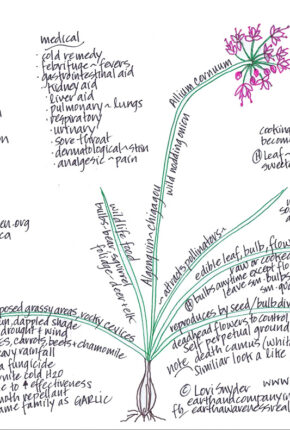 medical
· cold remedy
· febrifuge ~ fevers
· gastrointestinal aid
· kidney aid
· liver aid
· pulmonary ~ lungs
· respiratory
· urinary
· sore throat
· dermatological ~ skin
· analgesic ~ pain
Allium cernuum
wild nodding onion
Algonquin ~ chigagou
cooking
become
leaf ~
sweet
en.org
ca
wildlife food
bulbs - bear, squirrel
foliage - deer, elk
~ attracts pollinators ~
edible leaf, bulb, flow
raw or cooked
bulbs anytime except flo
leave sm. bulbs
posed grassy areas, rocky crevices
un, dappled shade
drought + wind
es, carrots, beets + chamomile
eavy rainfall
a fungicide
white cold H2O
e to ↑ effectiveness
moth repellant
ame family as GARLIC
reproduces by seed/bulb div
deadhead flowers to control
self perpetual ground
note death camus (whit
similar look & like
© Lori Snyder
www
earthandcompany
fb earthawarenessreal